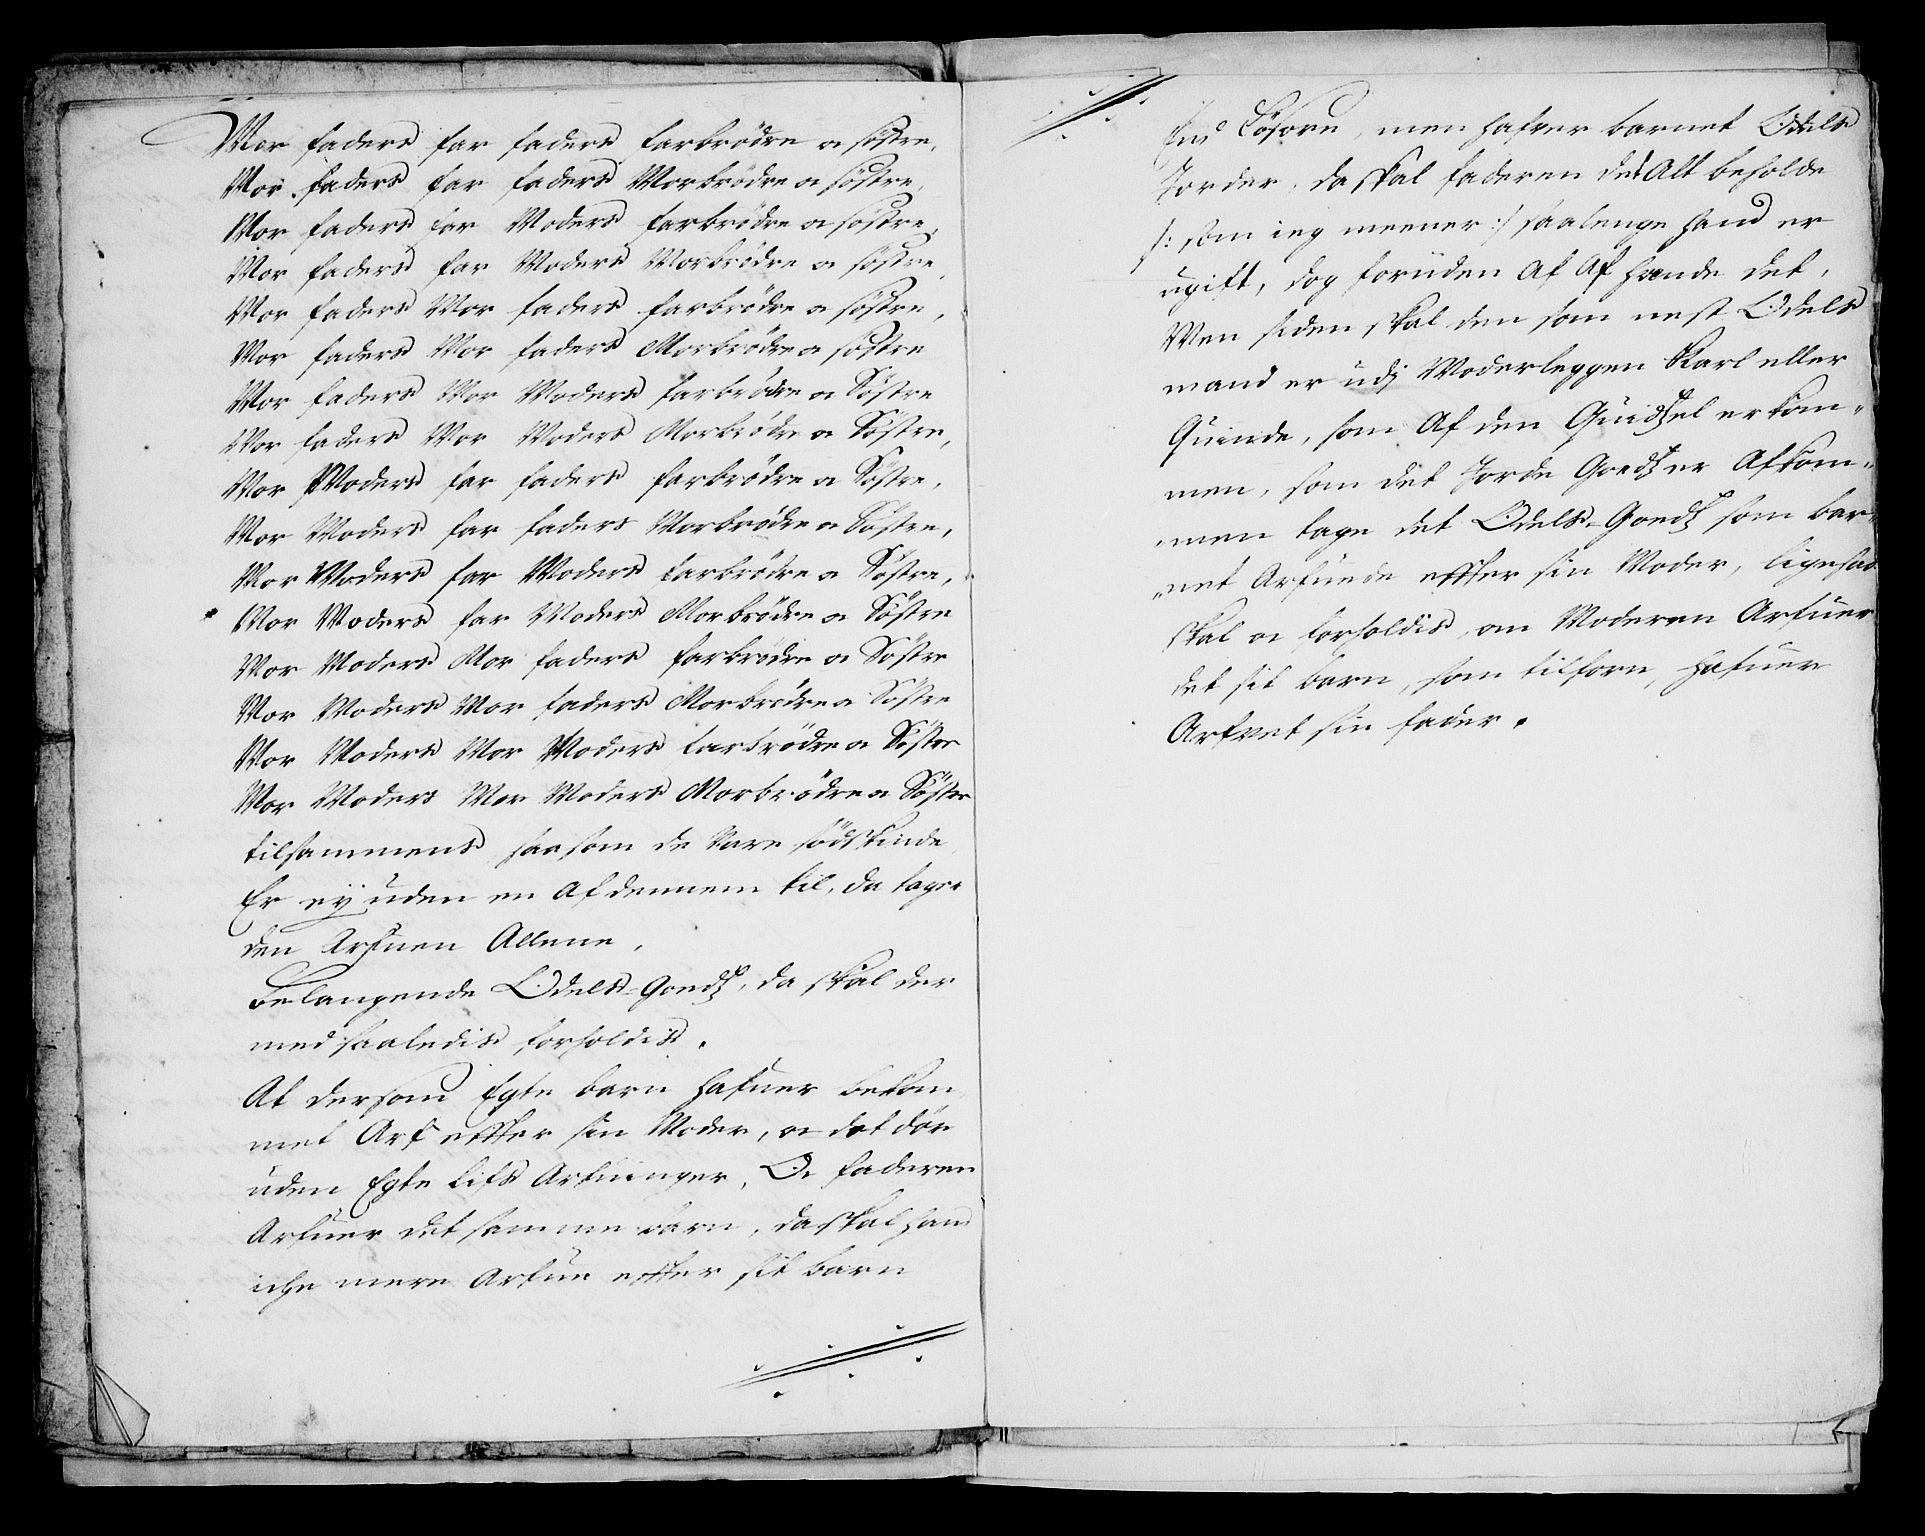 Mor faders far faders farbrödre oc söstre,
Mor faders far faders Morbrödre oc söstre,
Mor faders far Moders farbrödre oc söstre,
Mor faders far Moders Morbrödre oc söstre,
Mor faders Mor faders farbrödre oc söstre,
Mor faders Mor faders Morbrödre oc söstre
Mor faders Mor Moders farbrödre oc Söstre
Mor faders Mor Moders Morbrödre oc Söstre,
Mor Moders far faders farbrödre oc Söstre,
Mor Moders far faders Morbrödre oc Söstre,
Mor Moders far Moders farbrödre oc Söstre,
Mor Moders far Moders Morbrödre oc Söstre
Mor Moders Mor faders farbrödre oc Söstre
Mor Moders Mor faders Morbrödre oc Söstre
Mor Moders Mor Moders farbrödre oc Söstre
Mor Moders Mor Moders Morbrödre oc Söstre
tilsammens saasom de Vare södskinde
Er eÿ uden en af dennem til, da tager
den Arfuen Allene.
Belangende Odels-Goedz, da skal der
med saaledis forholdis.
At dersom Egte barn hafuer bekom
met Arf effter sin Moder, oc det dör
uden Egte lifs Arfuinger, Oc faderen
Arfuer det samme barn, da skal hand
iche mere Arfue effter sit barn
End Lösöre, men hafver barnet Odels
Jorder, da skal faderen det Alt beholde
/: som ieg meener :/ saalenge hand er
ugift, dog foruden at Af hænde det,
Men siden skal den som nest Odels
mand er udj Moderleggen Karl eller
Quinde, som Af den Quidzel er kom„
men, som det Jorde Goedz er Afkom„
„men tage det Odels-Goedz som bar„
„net Arfuede effter sin Moder, ligesaa
skal oc forholdis, om Moderen Arfuer
det sit barn, som tilforn, hafuer
Arfvet sin fader.